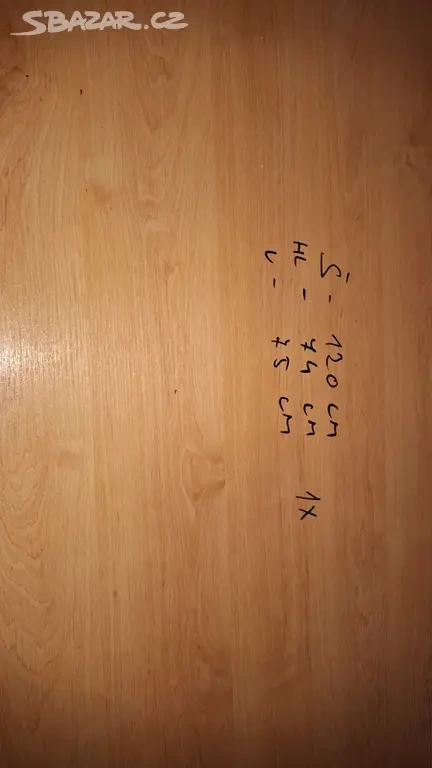 SBAZAR.CZ
Š - 120 cm
HL - 74 cm 1x
V - 75 cm